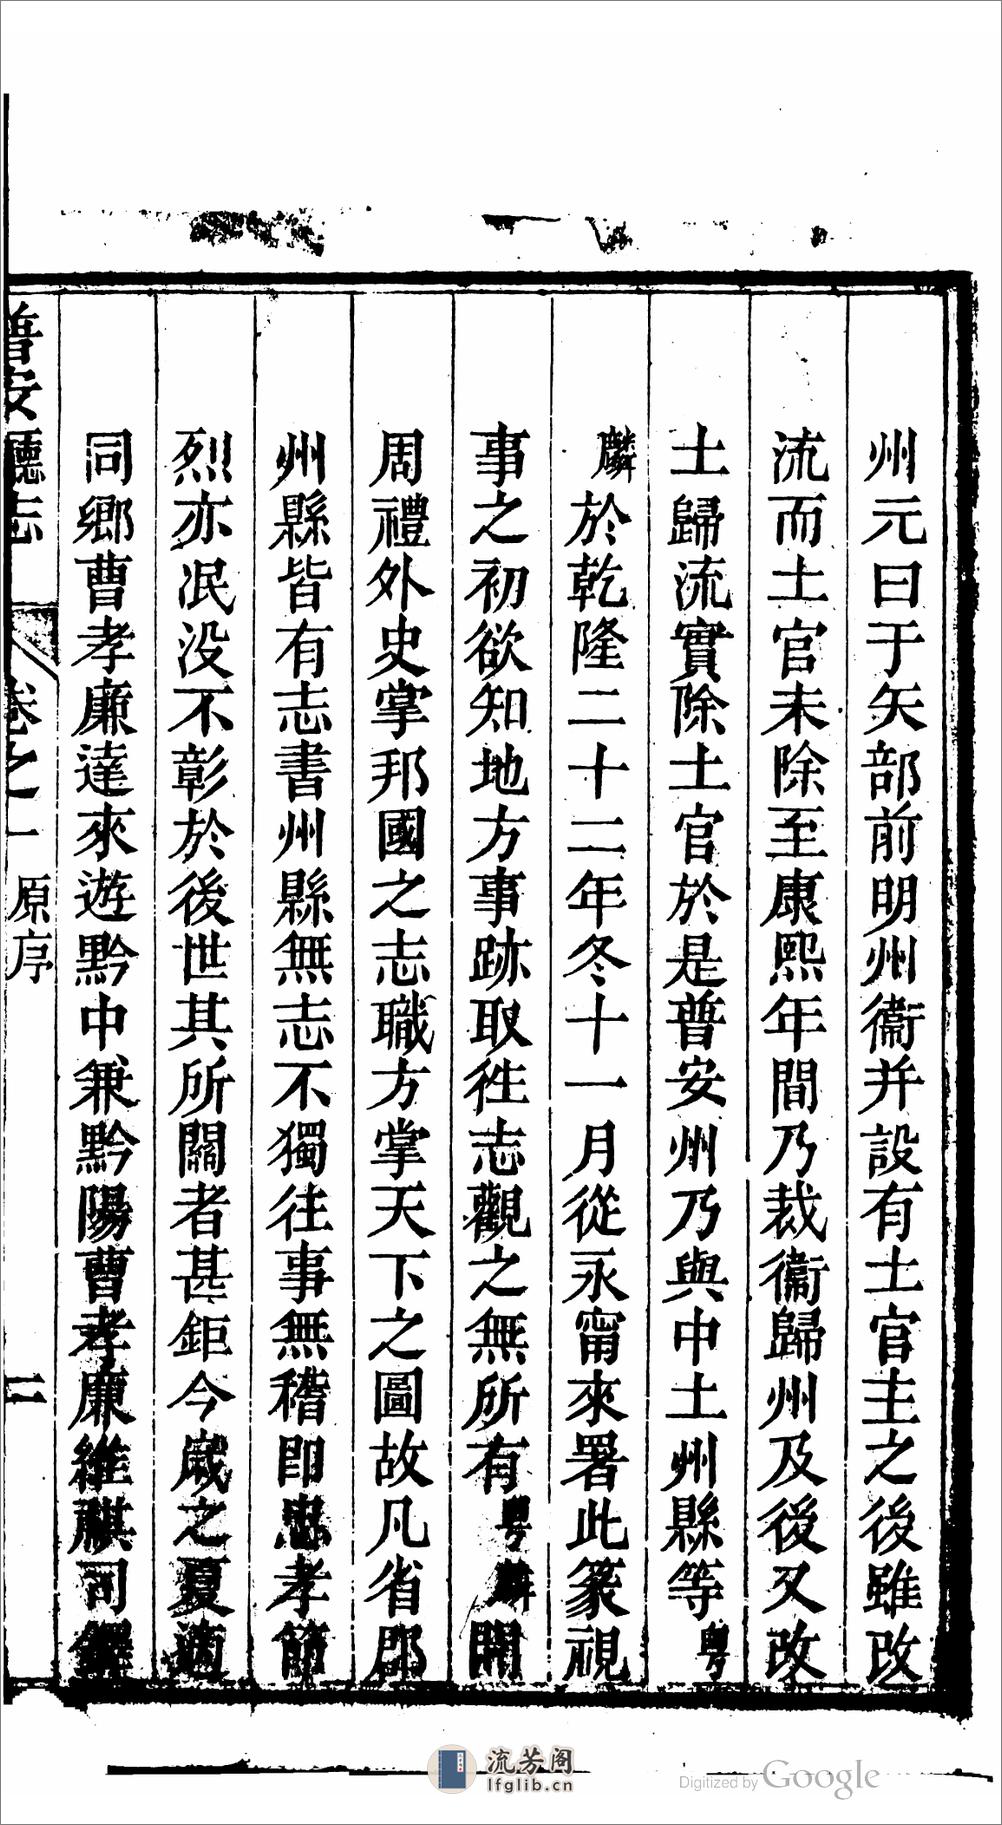 州元曰于矢部前明州衞并設有土官主之後雖改
流而土官未除至康熙年間乃裁衞歸州及後又改
土歸流實除土官於是普安州乃與中土州縣等粤
麟於乾隆二十二年冬十一月從永甯來署此篆視
事之初欲知地方事跡取徃志觀之無所有粤麟聞
周禮外史掌邦國之志職方掌天下之圖故凡省郡
州縣皆有志書州縣無志不獨往事無稽即忠孝節
烈亦泯没不彰於後世其所關者甚鉅今嵗之夏適
同鄉曹孝廉達來遊黔中兼黔陽曹孝廉維祺司鐸
普安廳志 卷之一 原序 二
流芳阁
lfglib.cn
Digitized by Google